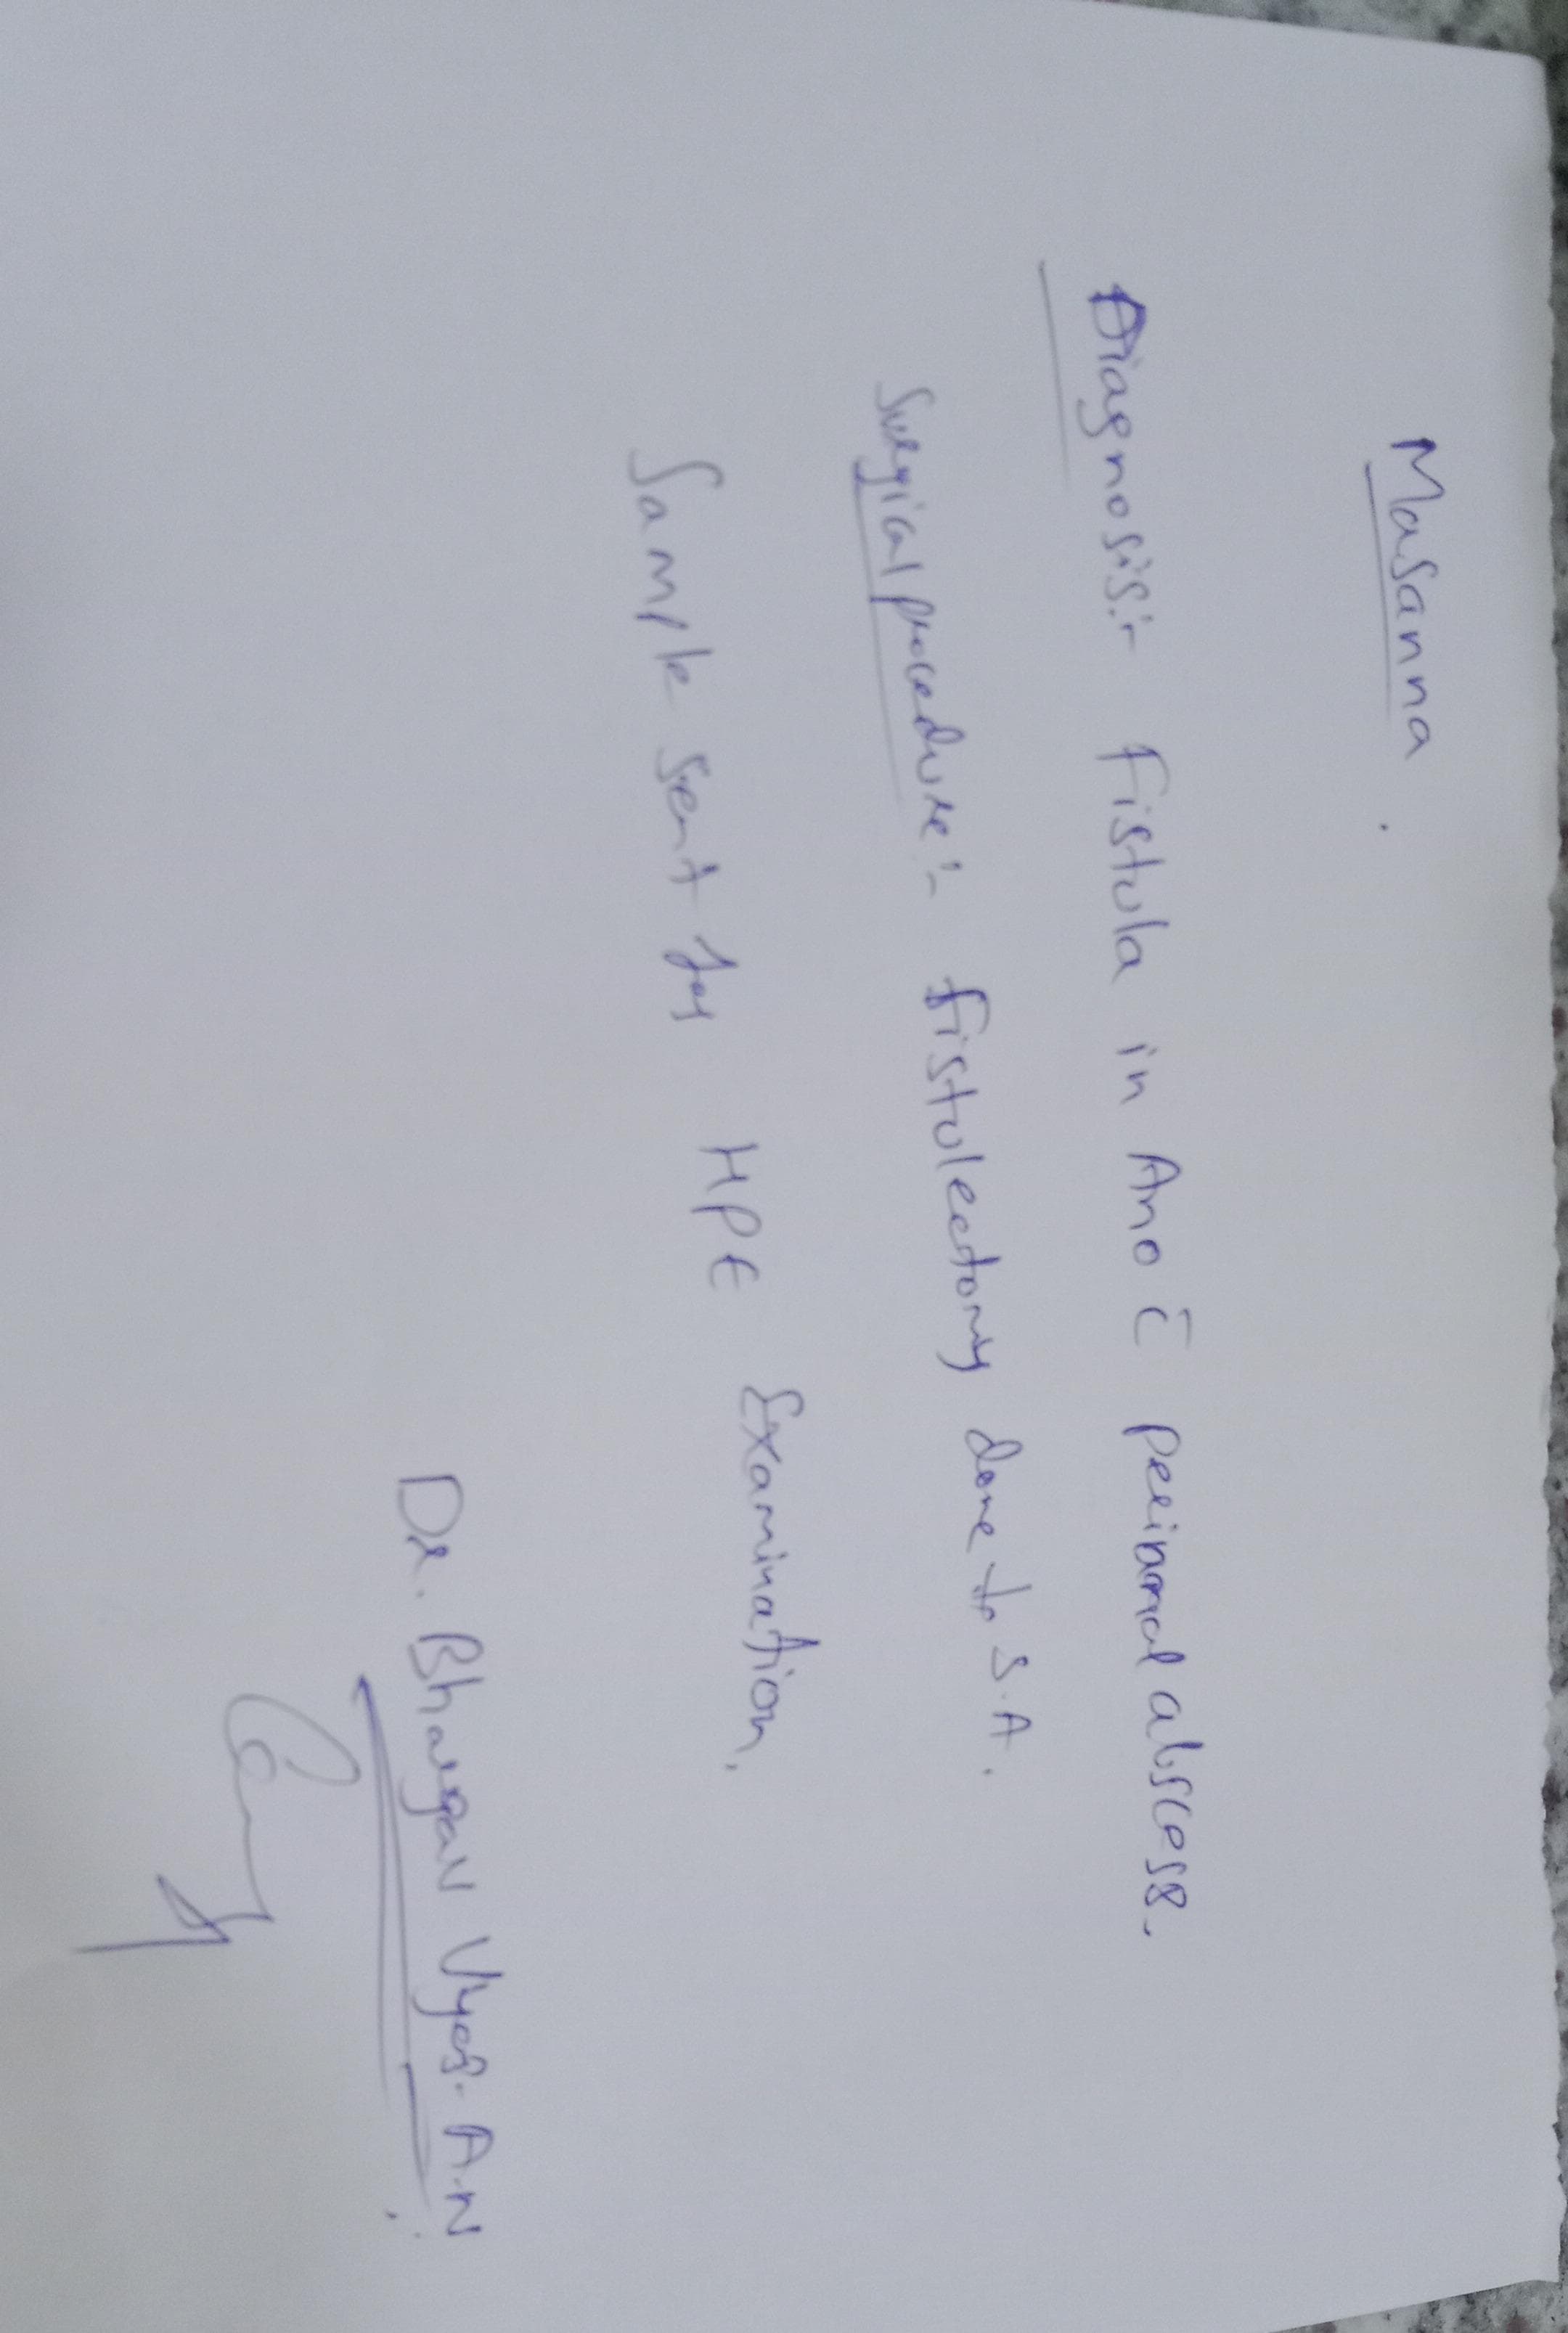 Masanna.
Diagnosis:- Fistula in Ano c̄ perianal abscess.
Surgical procedure:- fistulectomy done ↓ S.A.
Sample sent for HPE Examination.
Dr. Bhargav Vyas. A.N